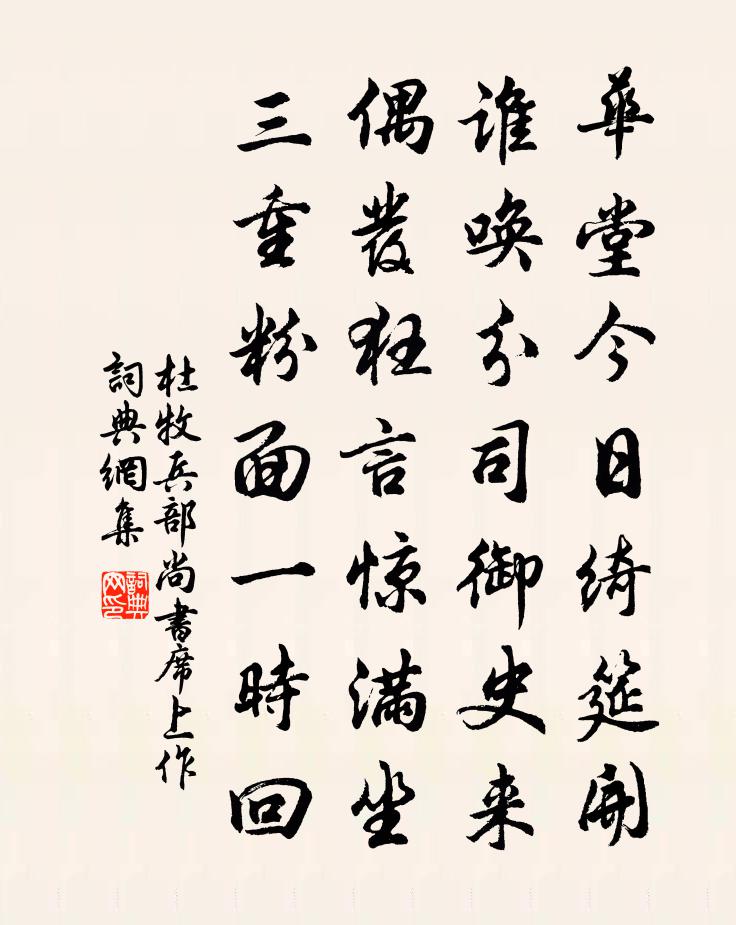 華堂今日綺筵開
誰喚分司御史来
偶發狂言惊满坐
三重粉面一時回
杜牧兵部尚書席上作
詞典網集
詞典網印